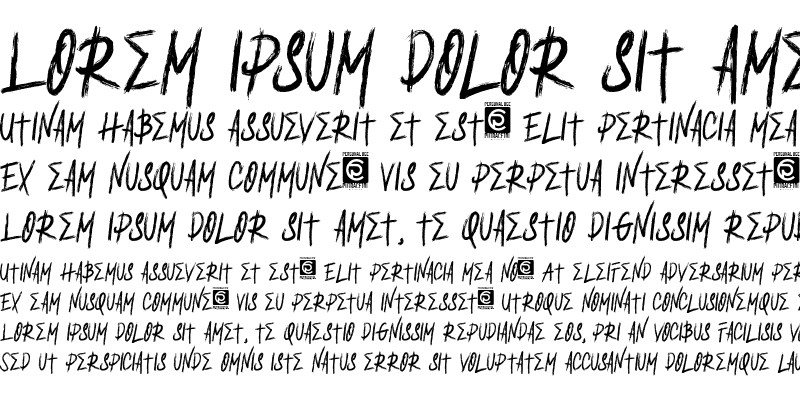 LOREM IPSUM DOLOR SIT AME
UTINAM HABEMUS ASSUEVERIT ET EST ELIT PERTINACIA MEA
EX EAM NUSQUAM COMMUNE VIS EU PERPETUA INTERESSET
LOREM IPSUM DOLOR SIT AMET, TE QUAESTIO DIGNISSIM REPUD
UTINAM HABEMUS ASSUEVERIT ET EST ELIT PERTINACIA MEA NO AT ELEIFEND ADVERSARIUM PER
EX EAM NUSQUAM COMMUNE VIS EU PERPETUA INTERESSET UTROQUE NOMINATI CONCLUSIONEMQUE
LOREM IPSUM DOLOR SIT AMET, TE QUAESTIO DIGNISSIM REPUDIANDAE EOS, PRI AN VOCIBUS FACILISIS V
SED UT PERSPICIATIS UNDE OMNIS ISTE NATUS ERROR SIT VOLUPTATEM ACCUSANTIUM DOLOREMQUE LAU